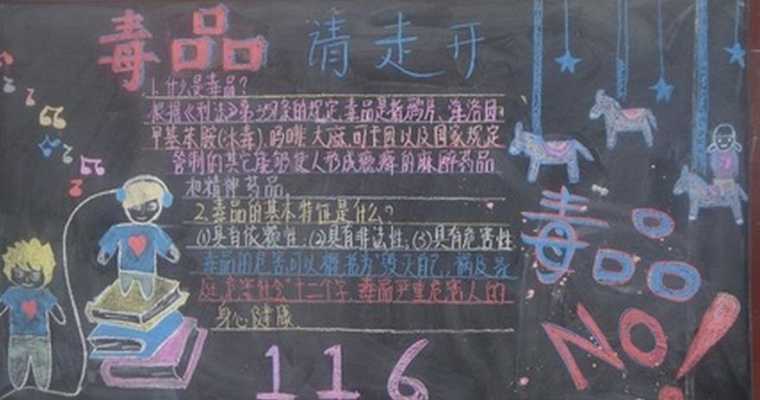 毒品 请走开
1.什么是毒品?
根据《刑法》第357条的规定,毒品是指鸦片、海洛因、
甲基苯胺(冰毒)、吗啡、大麻、可卡因以及国家规定
管制的其它能够使人形成瘾癖的麻醉药品
和精神药品。
2.毒品的基本特征是什么?
(1)具有依赖性;(2)具有非法性;(3)具有危害性
毒品的危害可以概括为“毁灭自己,祸及家
庭,危害社会”十二个字,毒品严重危害人的
身心健康
毒品
NO!
116